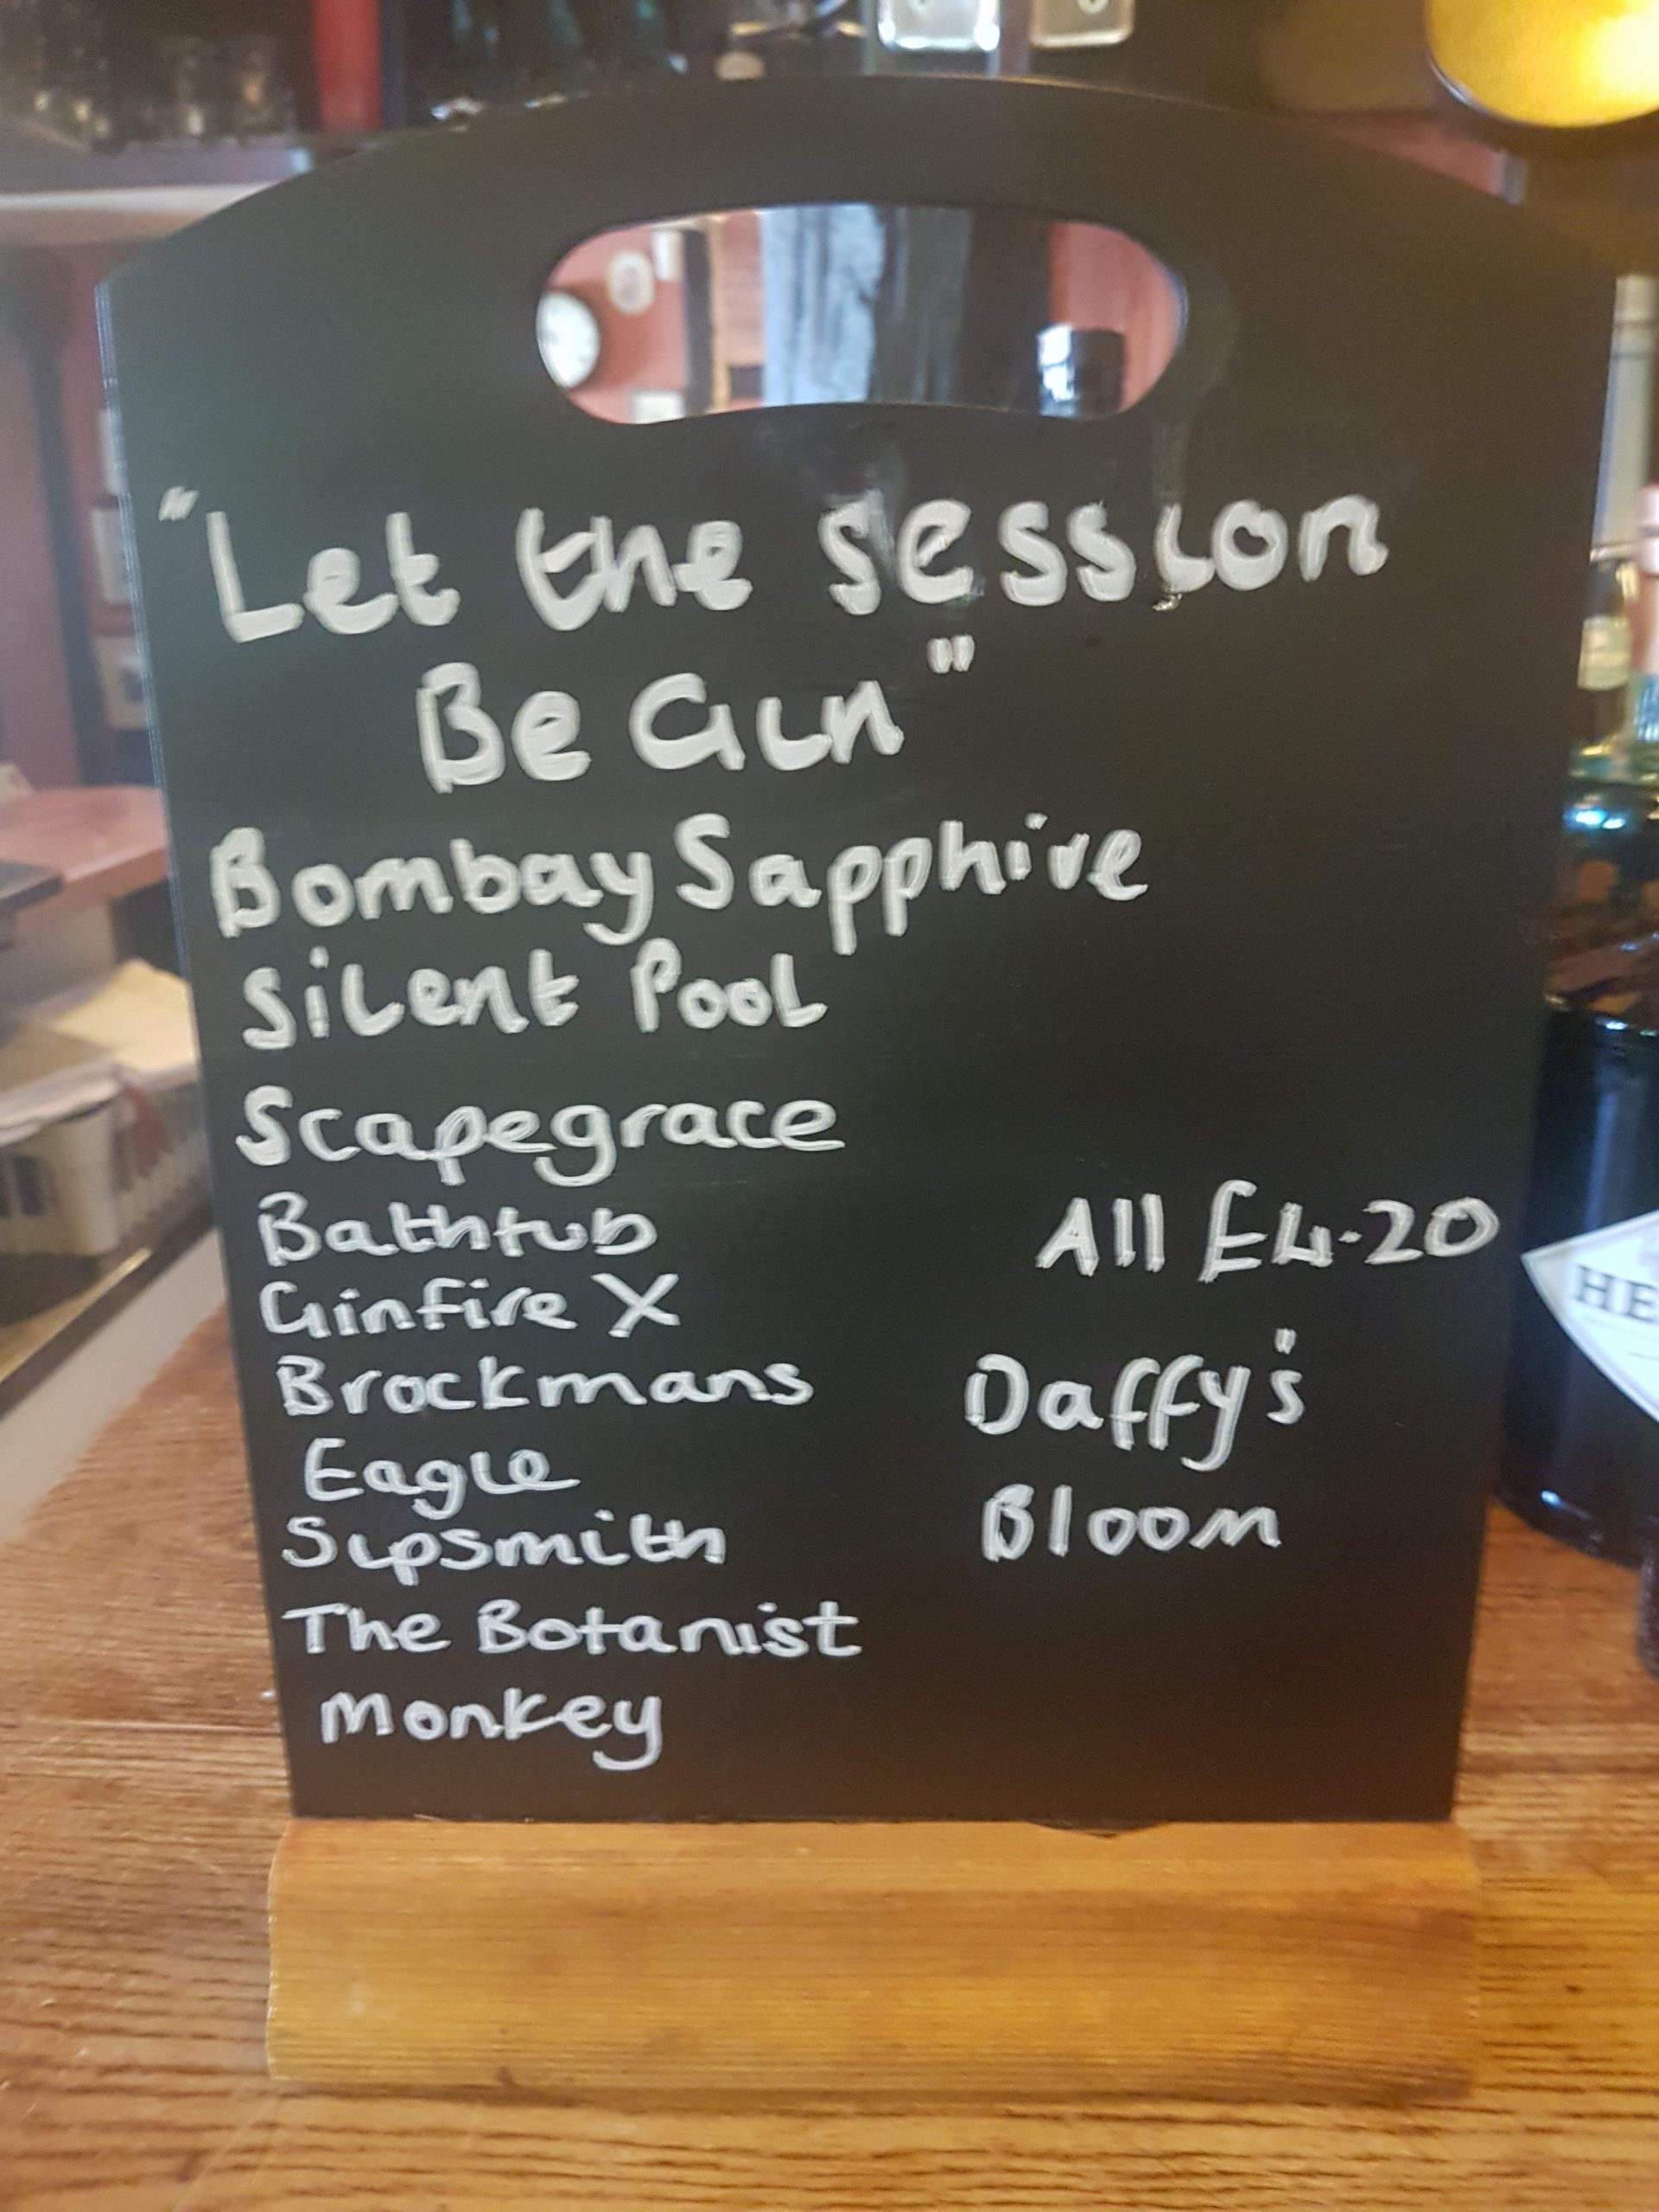 "Let the session
Be Gin"
Bombay Sapphire
Silent Pool
Scapegrace
Bathtub
Ginfire X
Brockmans
Eagle
Sipsmith
The Botanist
Monkey
All £4.20
Daffy's
Bloom
HE